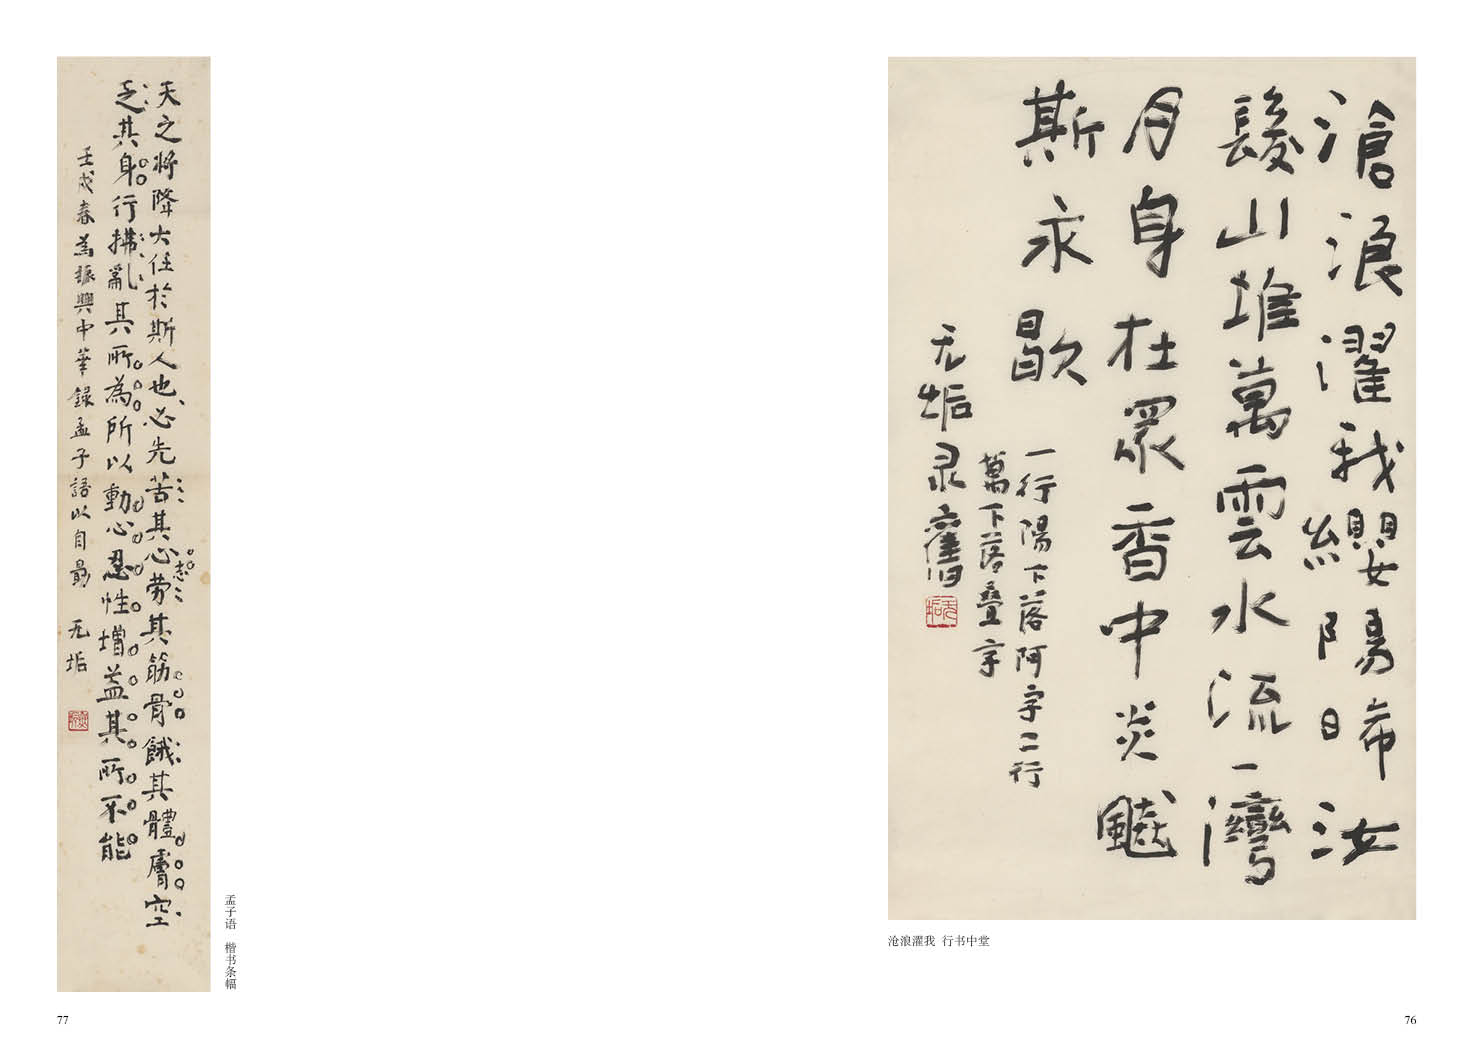 滄浪濯我纓陽晞汝
髮山堆萬雲水流一灣
月身在眾香中炎飈
斯永歇
一行陽下落阿字二行
萬下落疊字
无垢录舊
无垢
沧浪濯我 行书中堂
76
天之将降大任於斯人也必先苦其心志劳其筋骨餓其體膚空
乏其身行拂亂其所為所以動心忍性增益其所不能
壬戌春為振興中華錄孟子語以自勗 无垢
孟子语 楷书条幅
77